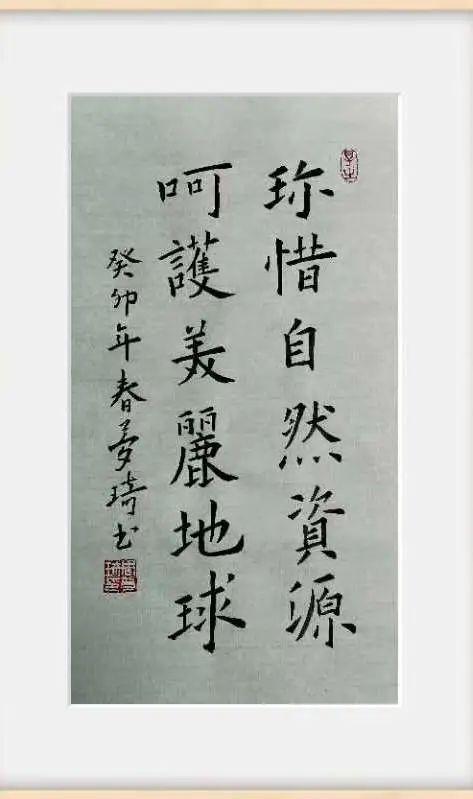 珎惜自然資源
呵護美麗地球
癸卯年春夢琦书